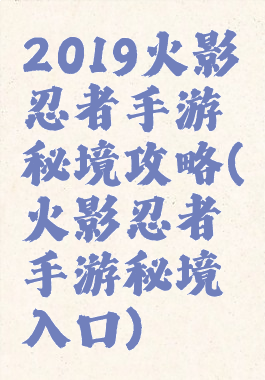 2019火影
忍者手游
秘境攻略(
火影忍者
手游秘境
入口)